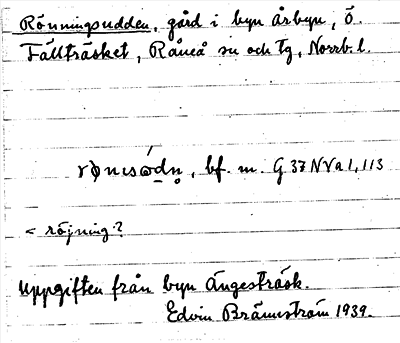 Rönningsudden, gård i byn Årbyn, Ö.
Fällträsket, Råneå sn och tg, Norrb. l.
bf. m. G 37 N V a 1, 113
< röjning?
Uppgiften från byn Ängesträsk.
Edvin Brännström 1939.